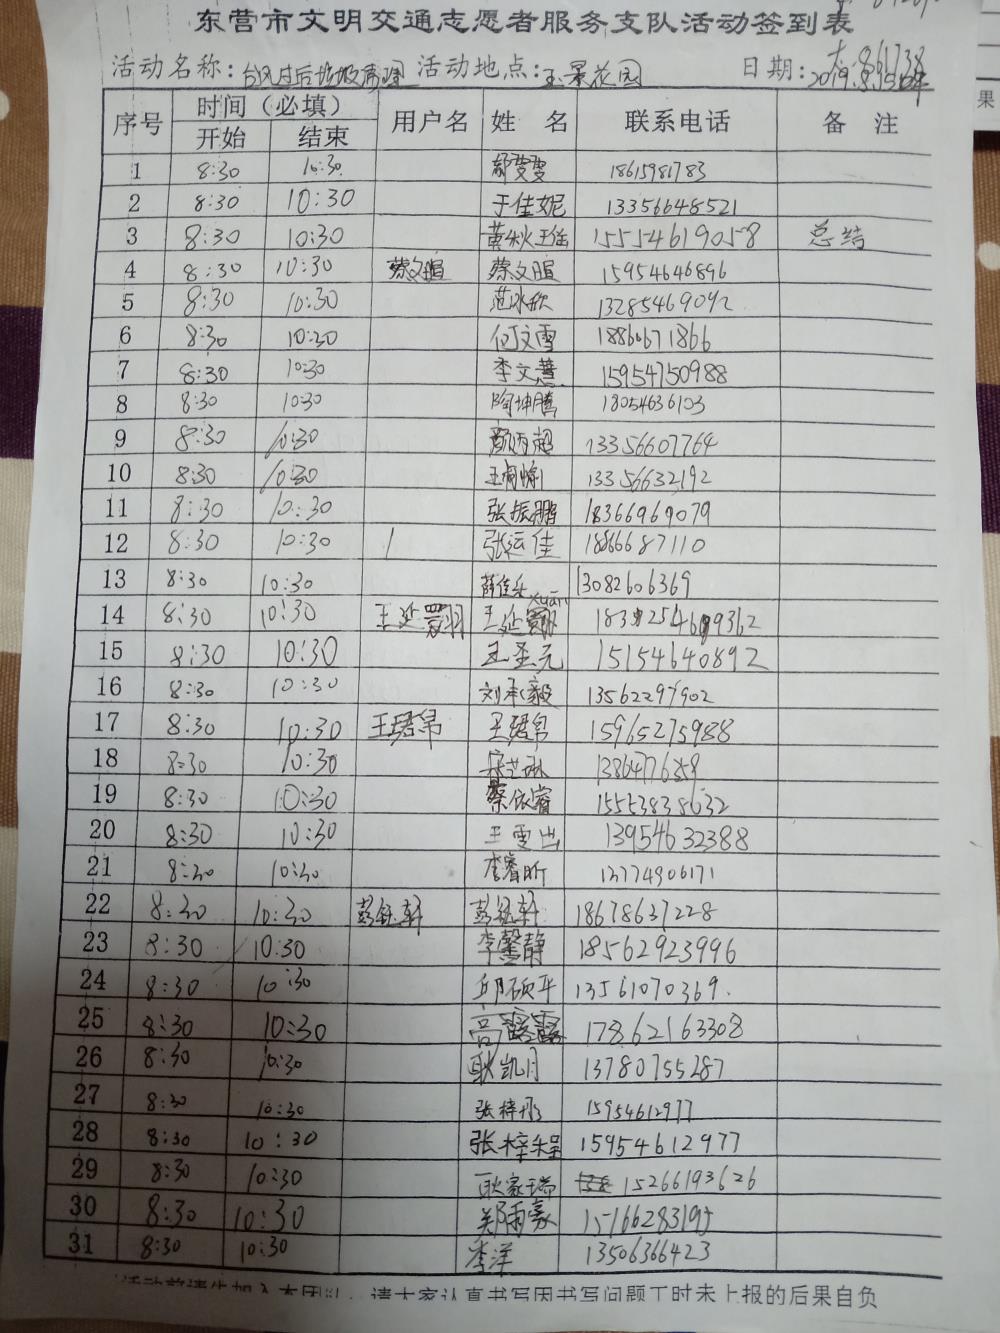 东营市文明交通志愿者服务支队活动签到表
活动名称:台风过后垃圾清理 活动地点:玉景花园 日期:2019.8.
序号 时间（必填） 用户名 姓名 联系电话 备注
开始 结束
1 8:30 10:30 18615981783
2 8:30 10:30 于佳妮 13356648521
3 8:30 10:30 黄秋瑾 15554619058 总结
4 8:30 10:30 蔡文暄 蔡文暄 15954646896
5 8:30 10:30 范冰欣 13285469092
6 8:30 10:30 何文雪 18860671866
7 8:30 10:30 李文慧 15954750988
8 8:30 10:30 陶坤腾 18054636103
9 8:30 10:30 颜丙超 13356607764
10 8:30 10:30 13356632192
11 8:30 10:30 张振鹏 18366969079
12 8:30 10:30 张运佳 18666687110
13 8:30 10:30 薛佳 13082606369
xuān
14 8:30 10:30 王延翾 王延翾
15 8:30 10:30 王圣元 15154640892
16 8:30 10:30 刘承毅 13562297902
17 8:30 10:30 王珺帛 王珺帛 15965275988
18 8:30 10:30 宋芷琳
19 8:30 10:30 蔡依睿 15553838632
20 8:30 10:30 王雯出 13954632388
21 8:30 10:30 李睿昕 13774906171
22 8:30 10:30 彭钰轩 彭钰轩 18678637228
23 8:30 10:30 李馨静 18562923996
24 8:30 10:30 邱硕平 13561070369.
25 8:30 10:30 高露露 17862163308
26 8:30 10:30 耿凯月 13780755287
27 8:30 10:30 张梓彤 15954612977
28 8:30 10:30 张梓程 15954612977
29 8:30 10:30 耿家瑞 15266193626
30 8:30 10:30 郑雨嘉 15166283195
31 8:30 10:30 季洋 13506366423
活动前请先加入本团队，请大家认真书写因书写问题工时未上报的后果自负
果